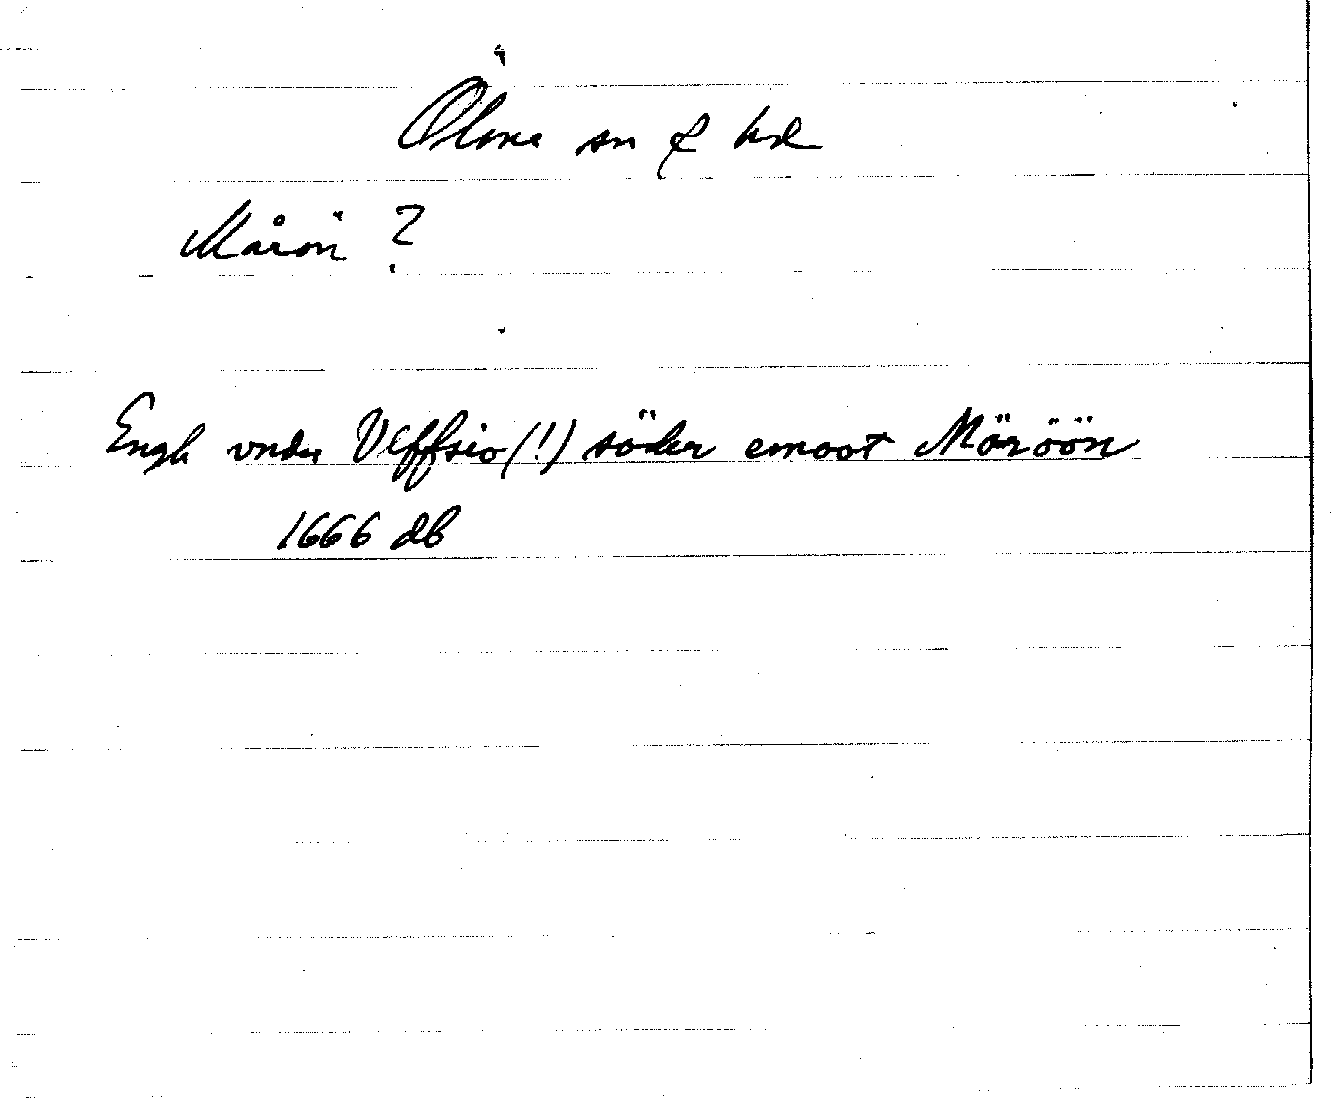 Ölme sn & hd
Mårön ?
Engh vnder Vlffsio(!) söder emoot Möröön
1666 db